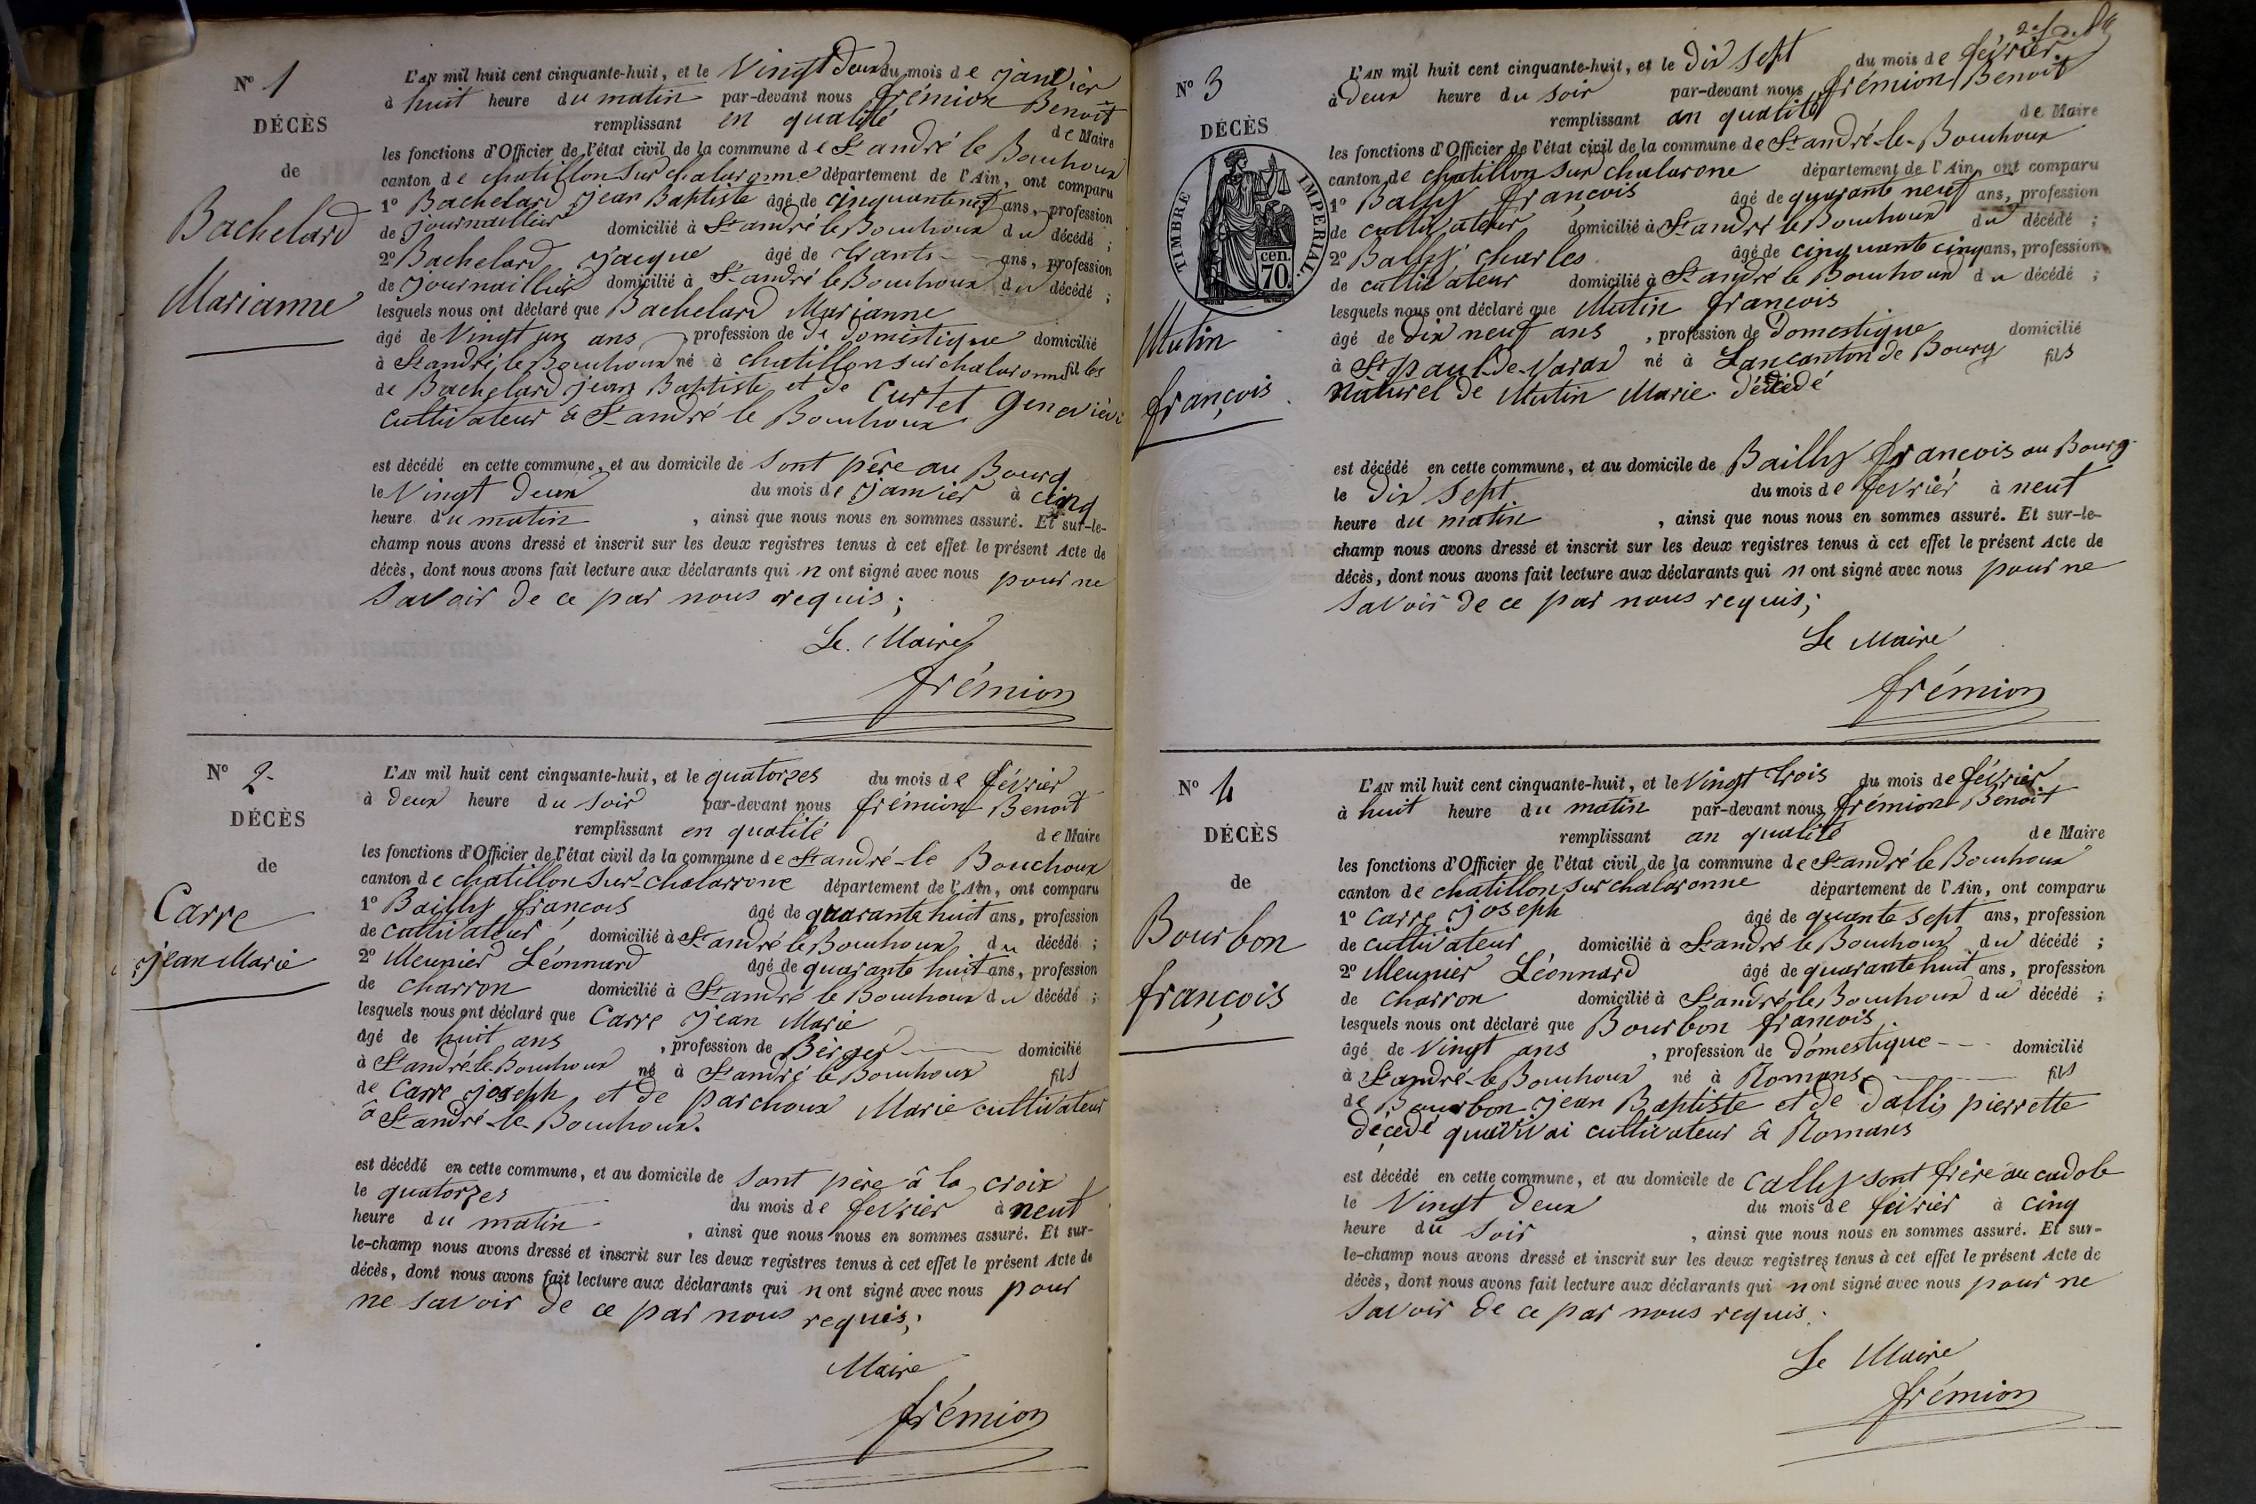 N° 1
DÉCÈS
de
Bachelard
Marianne
L'AN mil huit cent cinquante-huit, et le Vingt deux du mois de janvier
à huit heure du matin par-devant nous frémion Benoît
remplissant en qualité de Maire
les fonctions d'Officier de l'état civil de la commune de St andré le Bouchoux
canton de chatillon sur chalaronne département de l'Ain, ont comparu
1° Bachelard jean Baptiste âgé de cinquante neuf ans, profession
de journaillier domicilié à St andré le Bouchoux du décédé ;
2° Bachelard jacque âgé de trante ans, profession
de journaillier domicilié à St andré le Bouchoux du décédé ;
lesquels nous ont déclaré que Bachelard Marianne
âgé de Vingt un ans profession de de domestique domicilié
à St andré le Bouchoux né à chatillon sur chalaronne filles
de Bachelard jean Baptiste et de Curtet Geneviève
cultivateur à St andré le Bouchoux
est décédé en cette commune, et au domicile de sont père au Bourg
le Vingt deux du mois de janvier à cinq
heure du matin , ainsi que nous nous en sommes assuré. Et sur-le-
champ nous avons dressé et inscrit sur les deux registres tenus à cet effet le présent Acte de
décès, dont nous avons fait lecture aux déclarants qui n ont signé avec nous pour ne
savoir de ce par nous requis ;
Le Maire
frémion
N° 2
DÉCÈS
de
Carre
jean Marie
L'AN mil huit cent cinquante-huit, et le quatorzes du mois de février
à deux heure du soir par-devant nous frémion Benoît
remplissant en qualité de Maire
les fonctions d'Officier de l'état civil de la commune de St andré-le Bouchoux
canton de chatillon sur-chalarrone département de l'Ain, ont comparu
1° Bailly françois âgé de quarante huit ans, profession
de cultivateur domicilié à St andré le Bouchoux du décédé ;
2° Meunier Léonnard âgé de quarante huit ans, profession
de charron domicilié à St andré le Bouchoux du décédé ;
lesquels nous ont déclaré que Carre jean Marie
âgé de huit ans , profession de Bèrger domicilié
à St andré-le-Bouchoux né à St andré le Bouchoux fils
de Carre joseph et de parchoux Marie cultivateur
à St andré-le-Bouchoux.
est décédé en cette commune, et au domicile de sont père à la croix
le quatorzes du mois de fevrier à neuf
heure du matin , ainsi que nous nous en sommes assuré. Et sur-
le-champ nous avons dressé et inscrit sur les deux registres tenus à cet effet le présent Acte de
décès, dont nous avons fait lecture aux déclarants qui n ont signé avec nous pour
ne savoir de ce par nous requis ;
Maire
frémion
N° 3
DÉCÈS
TIMBRE IMPERIAL.
70 cen.
Mutin
françois
L'AN mil huit cent cinquante-huit, et le dix sept du mois de février
à deux heure du soir par-devant nous frémion Benoît
remplissant an qualité de Maire
les fonctions d'Officier de l'état civil de la commune de St andré-le-Bouchoux
canton de chatillon sur chalarone département de l'Ain, ont comparu
1° Bally françois âgé de quarante neuf ans, profession
de cultivateur domicilié à St andré le Bouchoux du décédé ;
2° Bally charles âgé de cinquante cinq ans, profession
de cultivateur domicilié à St andré le Bouchoux du décédé ;
lesquels nous ont déclaré que Mutin françois
âgé de dix neuf ans , profession de domestique domicilié
à St paul-de-Varax né à Lan canton de Bourg fils
naturel de Mutin Marie décédé
est décédé en cette commune, et au domicile de Bailly françois au Bourg
le dix sept du mois de fevriér à neuf
heure du matin , ainsi que nous nous en sommes assuré. Et sur-le-
champ nous avons dressé et inscrit sur les deux registres tenus à cet effet le présent Acte de
décès, dont nous avons fait lecture aux déclarants qui n ont signé avec nous pour ne
savoir de ce par nous requis ;
Le Maire
frémion
N° 4
DÉCÈS
de
Bourbon
françois
L'AN mil huit cent cinquante-huit, et le Vingt trois du mois de février
à huit heure du matin par-devant nous frémion Benoît
remplissant an qualité de Maire
les fonctions d'Officier de l'état civil de la commune de St andré le Bouchoux
canton de chatillon sur chalaronne département de l'Ain, ont comparu
1° Carre joseph âgé de quante sept ans, profession
de cultivateur domicilié à St andré le Bouchoux du décédé ;
2° Meunier Léonnard âgé de quarante huit ans, profession
de charron domicilié à St andré le Bouchoux du décédé ;
lesquels nous ont déclaré que Bourbon françois
âgé de Vingt ans , profession de domestique domicilié
à St andré-le Bouchoux né à Romans fils
de Bourbon jean Baptiste et de dallis pierrette
décedé cultivateur à Romans
est décédé en cette commune, et au domicile de Cally sont frère au cadole
le Vingt deux du mois de février à cinq
heure du soir , ainsi que nous nous en sommes assuré. Et sur-
le-champ nous avons dressé et inscrit sur les deux registres tenus à cet effet le présent Acte de
décès, dont nous avons fait lecture aux déclarants qui n ont signé avec nous pour ne
savoir de ce par nous requis.
Le Maire
frémion